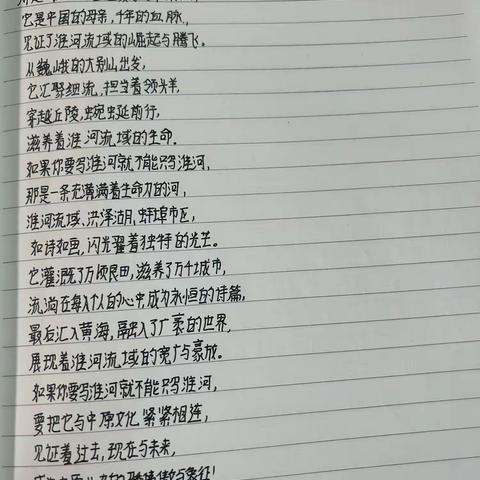 它是中国的母亲,千年的血脉,
见证了淮河流域的崛起与腾飞。
从巍峨的大别山出发,
它汇聚细流,担当着领头羊,
穿越丘陵,蜿蜒前行,
滋养着淮河流域的生命。
如果你要写淮河就不能只写淮河,
那是一条充满满着生命力的河,
淮河流域、洪泽湖,蚌埠市区,
如诗如画,闪光翟着独特的光芒。
它灌溉了万顷良田,滋养了万千城市,
流淌在每个人的心中,成为永恒的诗篇,
最后汇入黄海,融入了广袤的世界,
展现着淮河流域的宽广与豪放。
如果你要写淮河就不能只写淮河,
要把它与中原文化紧紧相连,
见证着过去,现在与未来,